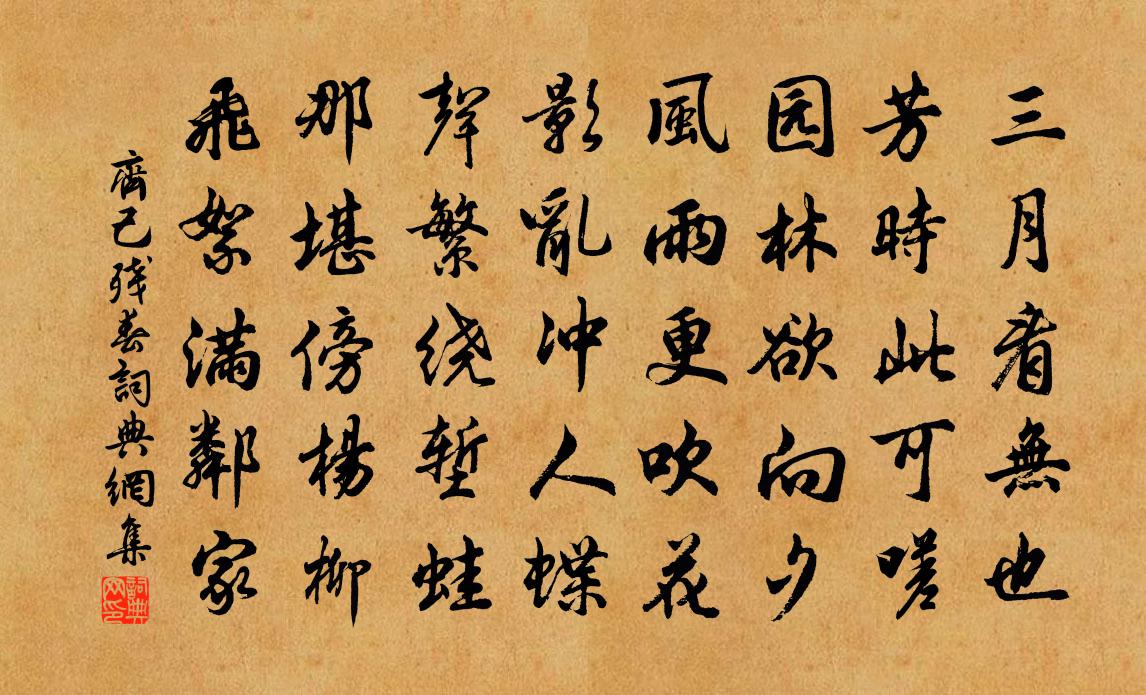 三月看無也
芳時此可嗟
园林欲向夕
風雨更吹花
影亂冲人蝶
聲繁绕蜇蛙
那堪傍楊柳
飛絮滿鄰家
齊己残春詞典網集
詞典网印